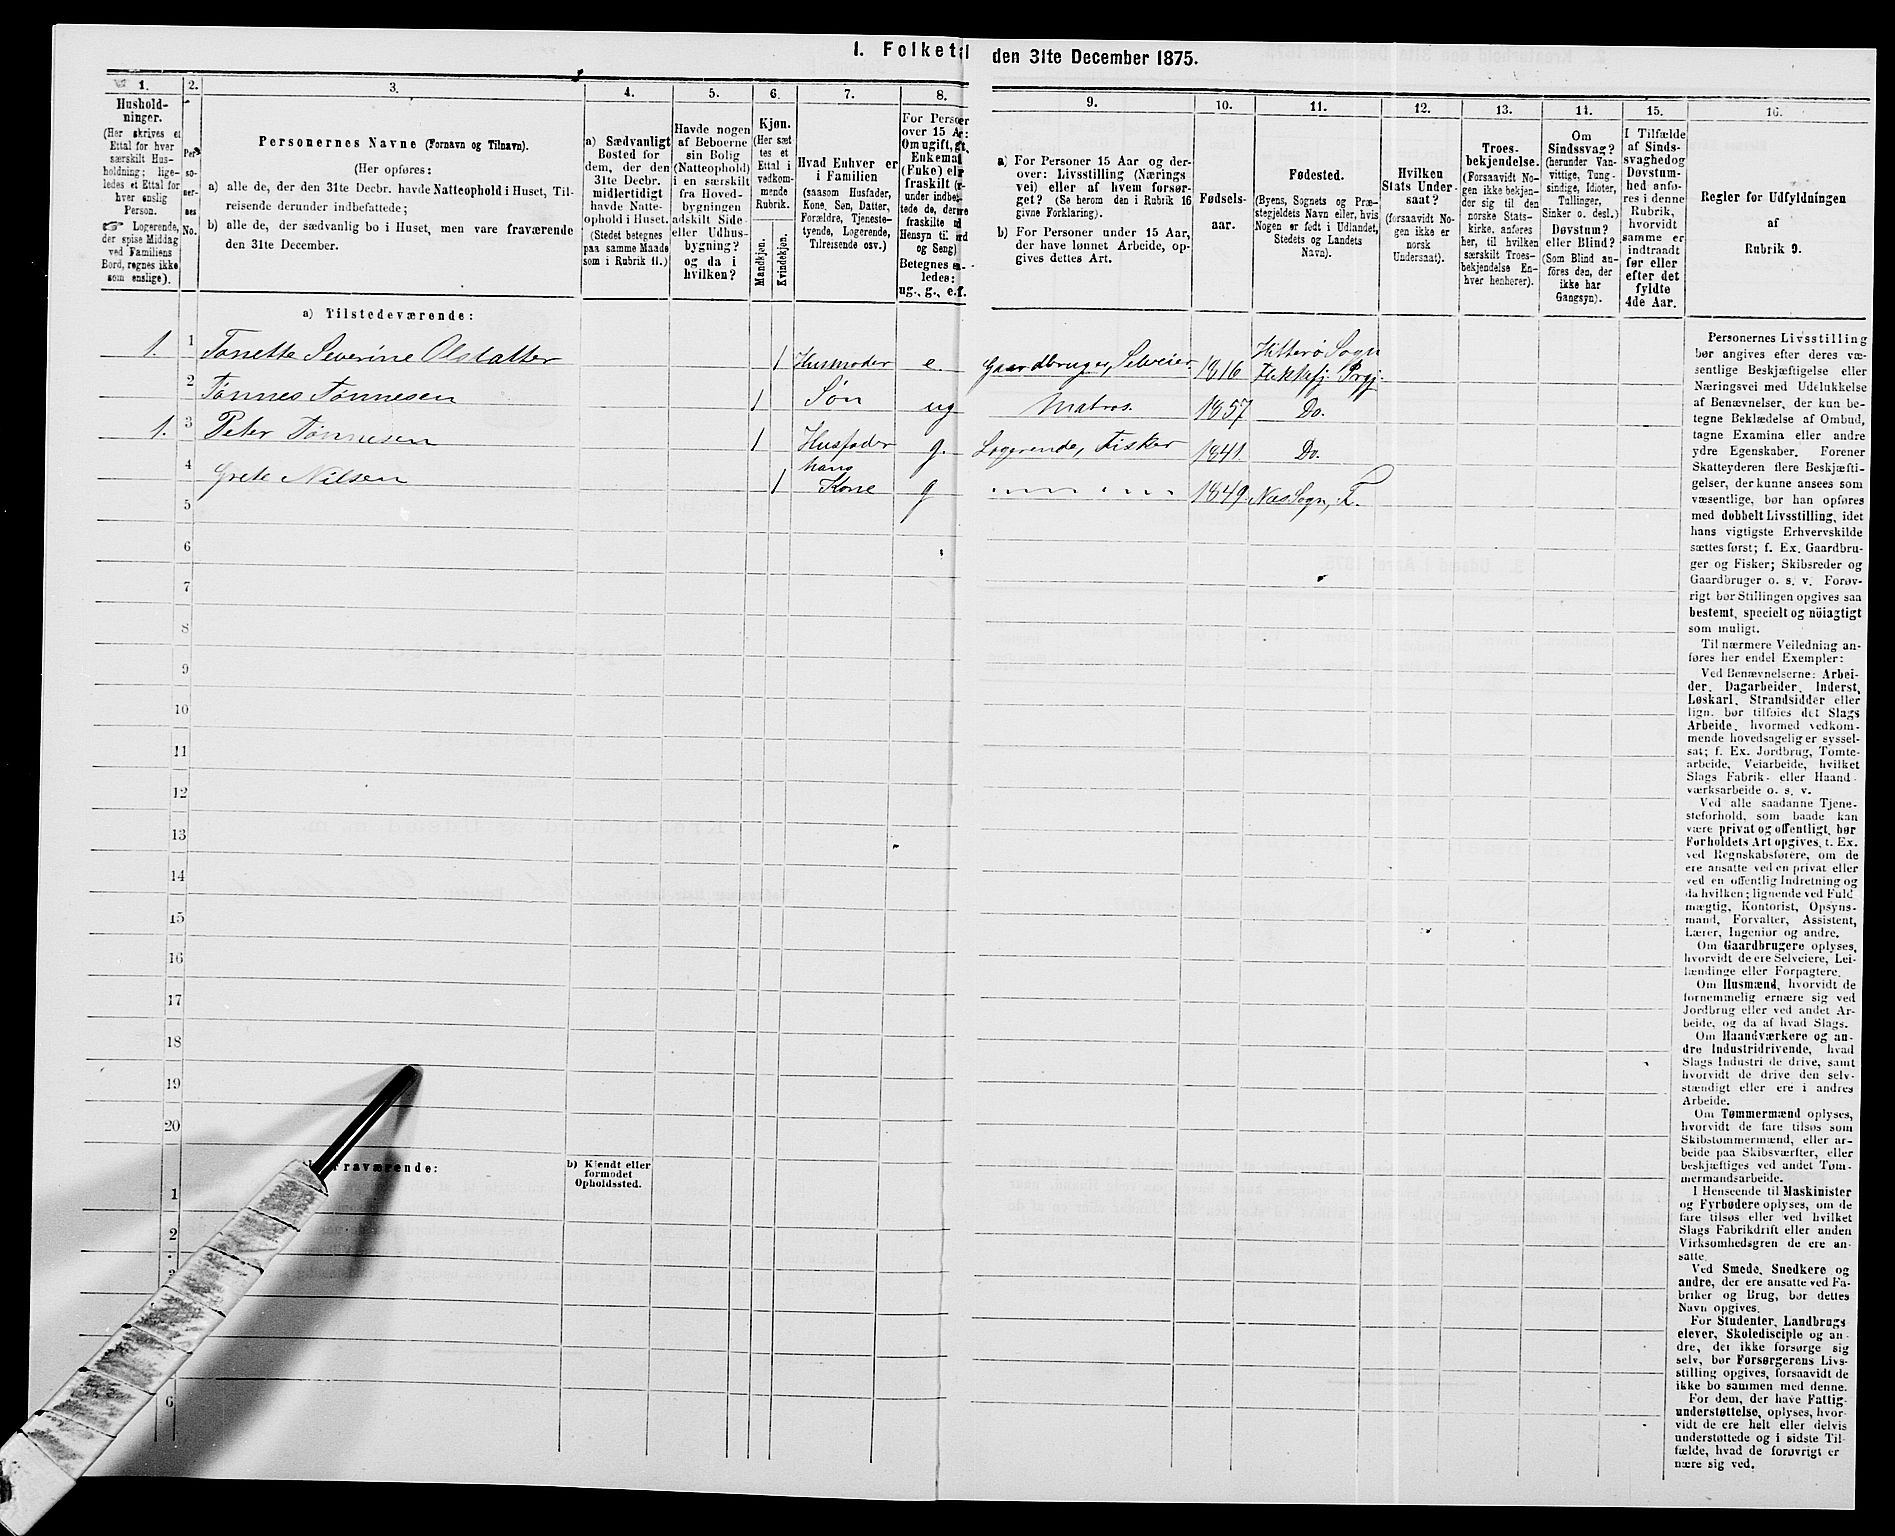 1. Folketal den 31te December 1875.
1. 2. 3. 4. 5. 6. 7. 8. 9. 10. 11. 12. 13. 14. 15. 16.
Hushold-
ninger.
(Her skrives et
Ettal for hver
særskilt Hus-
holdning; lige-
ledes et Ettal for
hver enslig
Person.
☞ Logerende,
der spise Middag
ved Familiens
Bord, regnes ikke
som enslige).
Per-
so-
ner-
nes
No.
Personernes Navne (Fornavn og Tilnavn).
(Her opføres:
a) alle de, der den 31te Decbr. havde Natteophold i Huset, Til-
reisende derunder indbefattede;
b) alle de, der sædvanlig bo i Huset, men vare fraværende
den 31te December.
a) Sædvanligt
Bosted for
dem, der den
31te Decbr.
midlertidigt
havde Natte-
ophold i Huset.
(Stedet betegnes
paa samme Maade
som i Rubrik 11.)
Havde nogen
af Beboerne
sin Bolig
(Natteophold)
i en særskilt
fra Hoved-
bygningen
adskilt Side-
eller Udhus-
bygning?
og da i
hvilken?
Kjøn.
(Her sæt-
tes et
Ettal i
vedkom-
mende
Rubrik.
Mandkjøn.
Kvindekjøn.
Hvad Enhver er
i Familien
(saasom Husfader,
Kone, Søn, Datter,
Forældre, Tjeneste-
tyende, Logerende,
Tilreisende osv.)
For Personer
over 15 Aar:
Om ugift, gift,
Enkemand
(Enke) eller
fraskilt
Betegnes saa-
ledes:
ug., g., e. f.
a) For Personer 15 Aar og der-
over: Livsstilling (Nærings-
vei) eller af hvem forsør-
get? (Se herom den i Rubrik 16
givne Forklaring).
b) For Personer under 15 Aar,
der have lønnet Arbeide, op-
gives dettes Art.
Fødsels-
aar.
Fødested.
(Byens, Sognets og Præ-
stegjeldets Navn eller, hvis
Nogen er født i Udlandet,
Stedets og Landets
Navn).
Hvilken
Stats Under-
saat?
(forsaavidt No-
gen ikke er
norsk
Undersaat).
Troes-
bekjendelse.
(Forsaavidt No-
gen ikke bekjen-
der sig til den
norske Stats-
kirke, anføres
her, til hvilken
særskilt Troes-
bekjendelse En-
hver henhører).
Om
Sindssvag?
(herunder Van-
vittige, Tung-
sindige, Idioter,
Tullinger,
Sinker o. desl.)
Døvstum?
eller Blind?
(Som Blind an-
føres den, der
ikke har
Gangsyn).
I Tilfælde
af Sinds-
svaghed og
Døvstum-
hed anfø-
res i denne
Rubrik,
hvorvidt
samme er
indtraadt
før eller
efter det
fyldte
4de Aar.
Regler for Udfyldningen
af
Rubrik 9.
a) Tilstedeværende:
1. 1 Tonette Severine Olsdatter 1 Husmoder e. Gaardbruger, Selveier 1816 Hitterø Sogn
Flekkefj. Prgj.
2 Tønnes Tønnesen 1 Søn ug Matros. 1857 Do.
1. 3 Peter Tønnesen 1 Husfader g. Logerende, Fisker 1841 Do.
4 Grete Nilsen 1 hans
Kone g 1849 Næs Sogn, F.
5
6
7
8
9
10
11
12
13
14
15
16
17
18
19
20
Fraværende:
b) Kjendt eller
formodet
Opholdssted.
1
2
3
6
Personernes Livsstilling
bør angives efter deres væ-
sentlige Beskjæftigelse eller
Næringsvei med Udelukkelse
af Benævnelser, der kun be-
tegne Beklædelse af Ombud,
tagne Examina eller andre
ydre Egenskaber. Forener
Skatteyderen flere Beskjæfti-
gelser, der kunne ansees som
væsentlige, bør han opføres
med dobbelt Livsstilling, idet
hans vigtigste Erhvervskilde
sættes først; f. Ex. Gaardbru-
ger og Fisker; Skibsreder og
Gaardbruger o. s. v. Forøv-
rigt bør Stillingen opgives saa
bestemt, specielt og nöiagtigt
som muligt.
Til nærmere Veiledning an-
føres her endel Exempler:
Ved Benævnelserne: Arbei-
der, Dagarbeider, Inderst,
Løskarl, Strandsidder eller
lign. bør tilføies det Slags
Arbeide, hvormed vedkom-
mende hovedsagelig er syssel-
sat; f. Ex. Jordbrug, Tomte-
arbeide, Veiarbeide, hvilket
Slags Fabrik- eller Haand-
værksarbeide o. s. v.
Ved alle saadanne Tjene-
steforhold, som baade kan
være privat og offentligt, bør
Forholdets Art opgives, t. Ex.
ved Regnskabsførere, om de
ere ansatte ved en privat eller
ved en offentlig Indretning og
da hvilken; lignende ved Fuld-
mægtig, Kontorist, Opsyns-
mand, Forvalter, Assistent,
Lærer, Ingeniør og andre.
Om Gaardbrugere oplyses,
hvorvidt de ere Selveiere, Lei-
lændinge eller Forpagtere.
Om Husmænd, hvorvidt de
fornemmelig ernære sig ved
Jordbrug eller ved andet Ar-
beide, og da af hvad Slags.
Om Haandværkere og an-
dre Industridrivende, hvad
Slags Industri de drive, samt
hvorvidt de drive den selv-
stændigt eller ere i andres
Arbeide.
Om Tømmermænd oplyses,
hvorvidt de fare tilsøs som
Skibstømmermænd, eller ar-
beide paa Skibsværfter, eller
beskjæftiges ved andet Tøm-
mermandsarbeide.
I Henseende til Maskinister
og Fyrbødere oplyses, om de
fare tilsøs eller ved hvilket
Slags Fabrikdrift eller anden
Virksomhedsgren de ere an-
satte.
Ved Smede, Snedkere og
andre, der ere ansatte ved Fa-
briker og Brug, bør dettes
Navn opgives.
For Studenter, Landbrugs-
elever, Skoledisciple og an-
dre, der ikke forsørge sig
selv, bør Forsørgerens Livs-
stilling opgives, forsaavidt de
ikke bo sammen med denne.
For dem, der have Fattig-
understøttelse, oplyses, hvor-
vidt de ere helt eller delvis
understøttede og i sidste Til-
fælde, hvad de forøvrigt er-
nære sig ved.